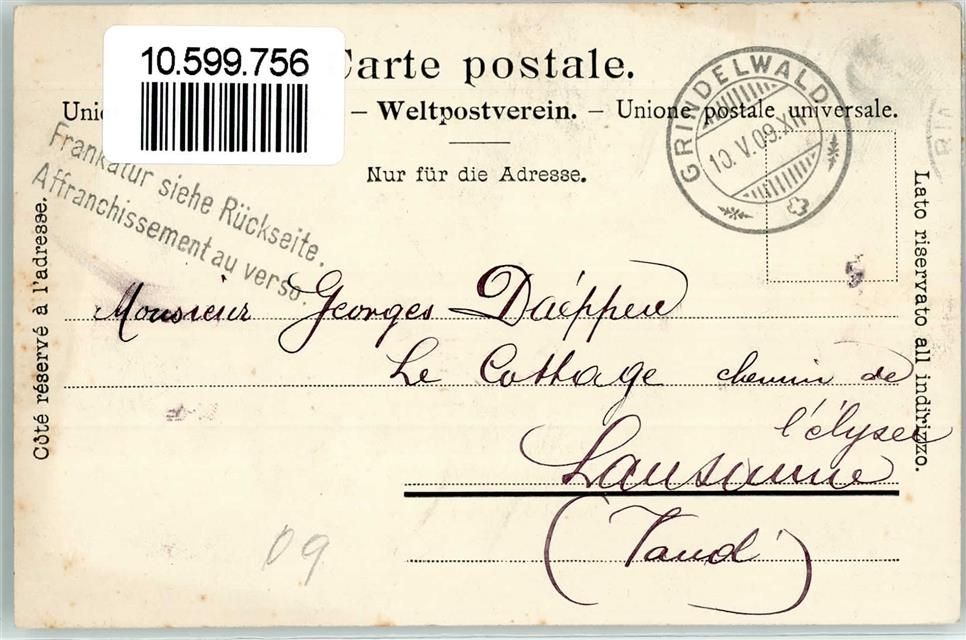 10.599.756
Carte postale.
Unio — Weltpostverein. — Unione postale universale.
Nur für die Adresse.
GRINDELWALD
10.V.09.XII
Frankatur siehe Rückseite.
Affranchissement au verso.
Côté réservé à l'adresse.
Lato riservato all indirizzo.
Monsieur Georges Daéppen
Le Cottage chemin de
l'élysée
Lausanne
(Vaud)
09